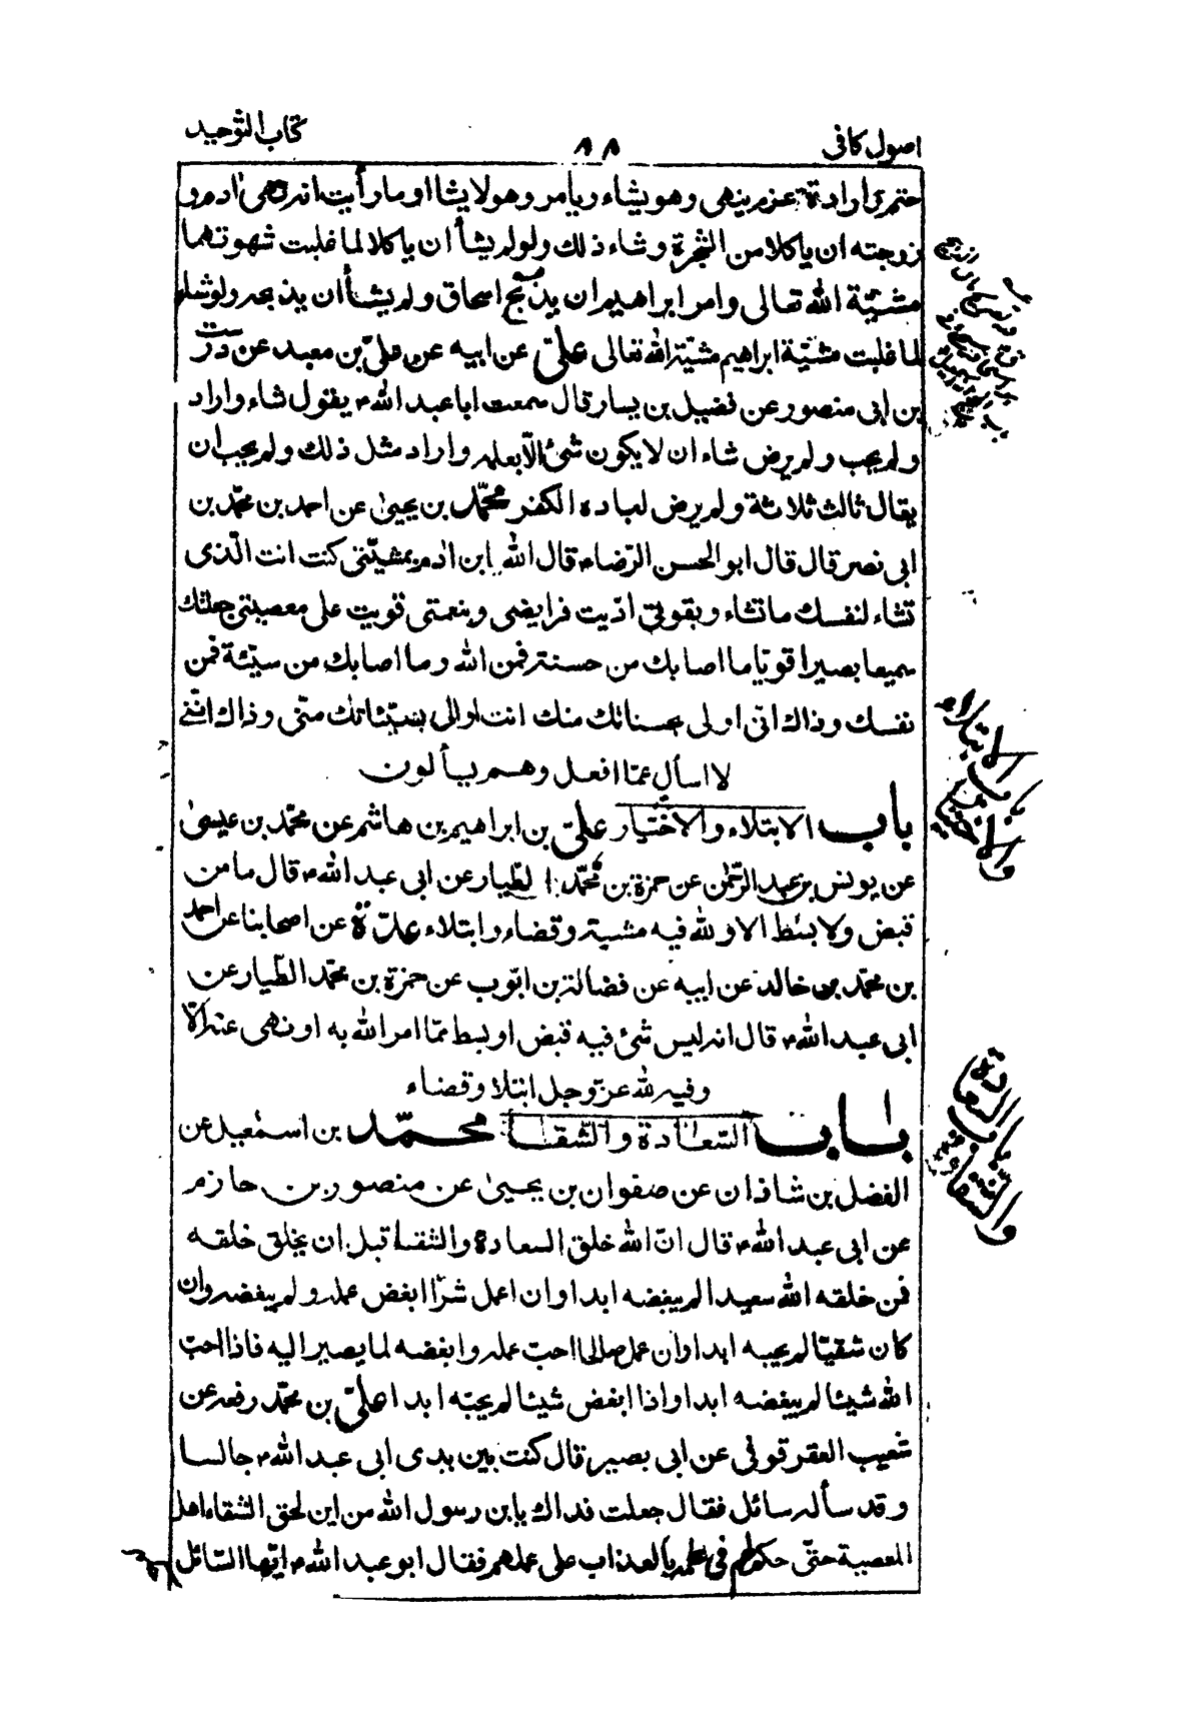 اصول كافى
٨٨
كتاب التوحيد
حتم وارادة عزم ينهى وهو يشاء ويامر وهو لا يشا او ما رأيت انه نهى ادم و
زوجته ان ياكلا من الشجرة وشاء ذلك ولو لم يشأ ان ياكلا لما غلبت شهوتهما
مشيّة الله تعالى وامر ابراهيم ان يذبح اسحاق ولم يشأ ان يذبحه ولو شاء
لما غلبت مشيّة ابراهيم مشيّة الله تعالى علىّ عن ابيه عن علىّ بن معبد عن درست
بن ابى منصور عن فضيل بن يسار قال سمعت ابا عبد الله ء يقول شاء واراد
ولم يحب ولم يرض شاء ان لا يكون شئ الّا بعلمه واراد مثل ذلك ولم يحب ان
يقال ثالث ثلاثة ولم يرض لعباده الكفر محمّد بن يحيى عن احمد بن محمّد بن
ابى نصر قال قال ابو الحسن الرّضا ء قال الله ابن ادم بمشيّتى كنت انت الّذى
تشاء لنفسك ما تشاء وبقوتى ادّيت فرايضى وبنعمتى قويت على معصيتى جعلتك
سميعا بصيرا قويّا ما اصابك من حسنة فمن الله وما اصابك من سيّئة فمن
نفسك وذاك انّى اولى بحسناتك منك انت اولى بسيّئاتك منّى وذاك انّنى
لا اسأل عمّا افعل وهم يسألون
باب الابتلاء والاختيار علىّ بن ابراهيم بن هاشم عن محمّد بن عيسى
عن يونس بن عبد الرّحمن عن حمزة بن محمّد الطيار عن ابى عبد الله ء قال ما من
قبض ولا بسط الا ولله فيه مشية وقضاء وابتلاء عدّة عن اصحابنا عن احمد
بن محمّد بن خالد عن ابيه عن فضالة بن ايّوب عن حمزة بن محمّد الطّيار عن
ابى عبد الله ء قال انه ليس شئ فيه قبض او بسط ممّا امر الله به او نهى عنه الّا
وفيه لله عزّ وجل ابتلا وقضاء
باب السّعادة والشّقا محمّد بن اسمعيل عن
الفضل بن شاذان عن صفوان بن يحيى عن منصور بن حازم
عن ابى عبد الله ء قال انّ الله خلق السعادة والشقا قبل ان يخلق خلقه
فمن خلقه الله سعيدا لم يبغضه ابدا وان اعمل شرّا ابغض عمله ولم يبغضه وان
كان شقيّا لم يحبه ابدا وان عمل صالحا احبّ عمله وابغضه لما يصير اليه فاذا احبّ
الله شيئا لم يبغضه ابدا واذا ابغض شيئا لم يحبّه ابدا علىّ بن محمّد رفعه عن
شعيب العقرقوفى عن ابى بصير قال كنت بين يدى ابى عبد الله ء جالسا
وقد سأله سائل فقال جعلت فداك يابن رسول الله من اين لحق الشقاء اهل
المعصية حتّى حكم لهم فى علمه بالعذاب على عملهم فقال ابو عبد الله ء ايّها السّائل
باب الابتلاء
والاختيار
باب السعادة
والشقاوة